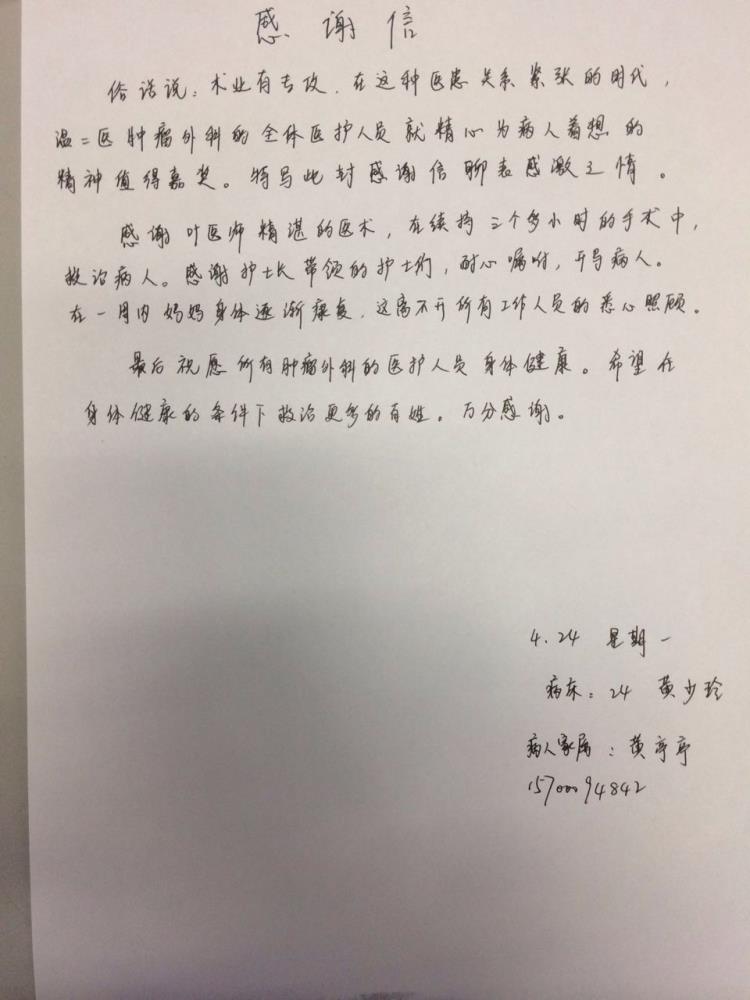 感谢信
俗话说:术业有专攻,在这种医患关系紧张的时代,
温二医肿瘤外科的全体医护人员就精心为病人着想的
精神值得嘉奖。特写此封感谢信聊表感激之情。
感谢叶医师精湛的医术,在续持三个多小时的手术中,
救治病人。感谢护士长带领的护士们,耐心嘱咐,开导病人。
在一月内妈妈身体逐渐康复,这离不开所有工作人员的悉心照顾。
最后祝愿所有肿瘤外科的医护人员身体健康。希望在
身体健康的条件下救治更多的百姓。万分感谢。
4.24 星期一
病床:24 黄少玲
病人家属:黄亭亭
15700094842